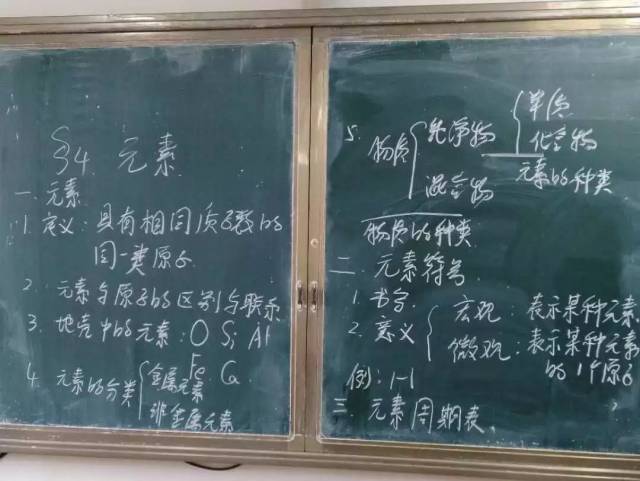 §4 元素
一 元素
1. 定义：具有相同质子数的
同一类原子
2. 元素与原子的区别与联系
3. 地壳中的元素：O Si Al
Fe Ca
4. 元素的分类
金属元素
非金属元素
5. 物质
纯净物
单质
化合物
元素的种类
混合物
物质的种类
二 元素符号
1. 书写
2. 意义
宏观：表示某种元素
微观：表示某种元素
的1个原子
例：H
三 元素周期表